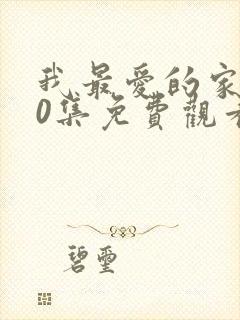 我最愛的家
0集免費觀看
碧璽